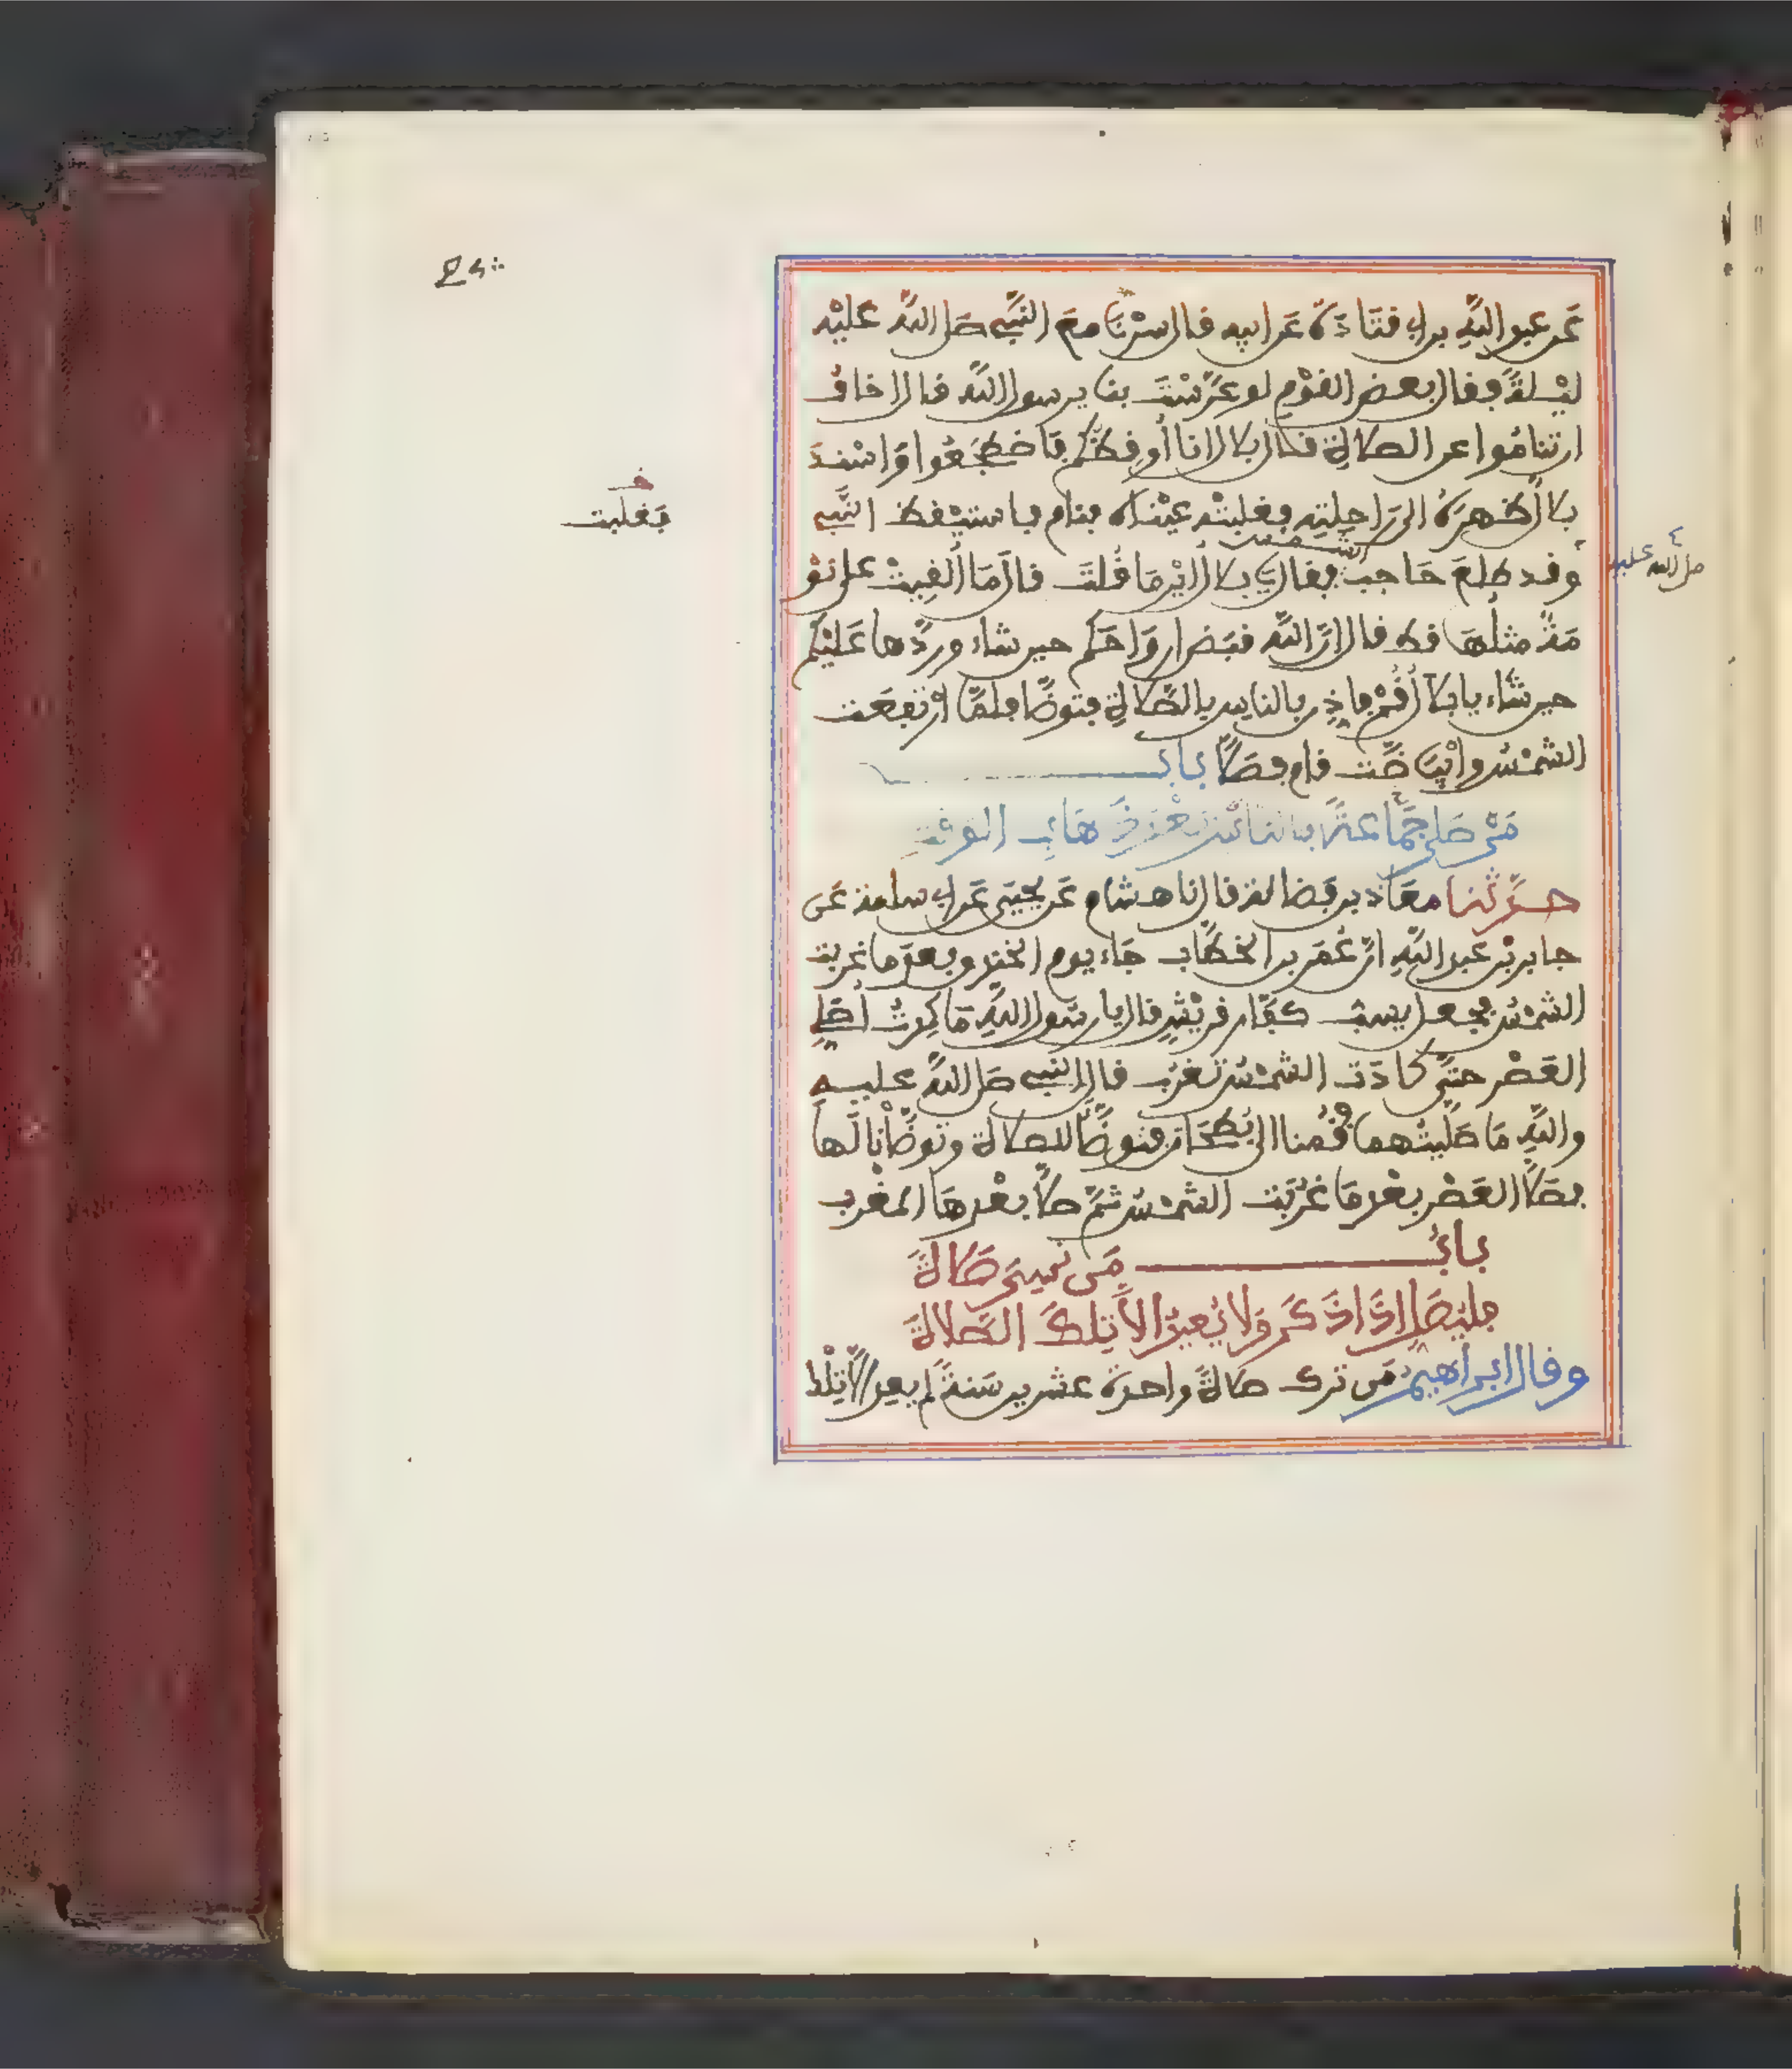 عَن عبد اللَّهِ بن ابى قتَادَة عَن ابيه قال سرْنَا معَ النَّبِى صَلى اللَّه عليْه
ليْلةً فقال بعض القوْم لو عَرَّسْتَ بنا يرسول اللَّه قال اخافُ
ان تنامُوا عن الصلاةِ قال بلال انا أُوقِظكُم فَاضطجَعُوا وَاسْندَ
بلالٌ ظهرَهُ الى رَاحِلتِه فغلبتْه عيْناه فنام فاستيْقظ النَّبِى
صلى الله عليه
فَغلبت
وقد طلعَ حَاجبُ الشمس فقال يَا بلال أيْن مَا قُلتَ قال مَا ألقِيتْ على نوْ
مَةٌ مثلُهَا قط قال إنَّ اللَّه قبَض ارواحَكم حين شاء وردَّها عَليْكم
حين شَاء يا بلال قُمْ فاذِّن بالناس بالصَّلاةِ فتوضَّأ فلمَّا ارْتفعَت
الشمْسُ وابْيَاضَّت قام فصَلَّى بابُ
مَنْ صَلى بالناس جمَاعةً بعْدَ ذهَابِ الوقْتِ
حدَّثنا معَاذ بن فَضالة قال نا هشام عَن يحيَى عَن ابى سلمة عَن
جابر بْن عبد اللَّهِ انَّ عُمَر بن الخطَّاب جَاء يوم الخندق بعدَ ما غربت
الشمْسُ فجعل يسبُّ كفَّار قريْشٍ قال يا رسُول اللَّهِ مَا كِدتُ اصَلِّى
العَصْر حتَّى كادَت الشمْسُ تغرُب قال النبى صَلى اللَّه عليه
واللَّهِ مَا صَلَّيْتُها فقُمنا الى بُطحَان فتوضَّأ للصلاة وتوضَّأنا لَها
فصَلَّى العَصْر بعْد مَا غرُبَت الشمْسُ ثمَّ صلَّى بعْدهَا المغْرب
بابُ مَن نسِىَ صَلاةً
فليُصَلِّ إذَا ذكَر وَلا يُعِيدُ إلاَّ تِلكَ الصَّلاةَ
وقال ابراهيمُ مَن ترك صلاةً واحدة عشرين سَنةً لم يعِد إلاَّ تِلْك